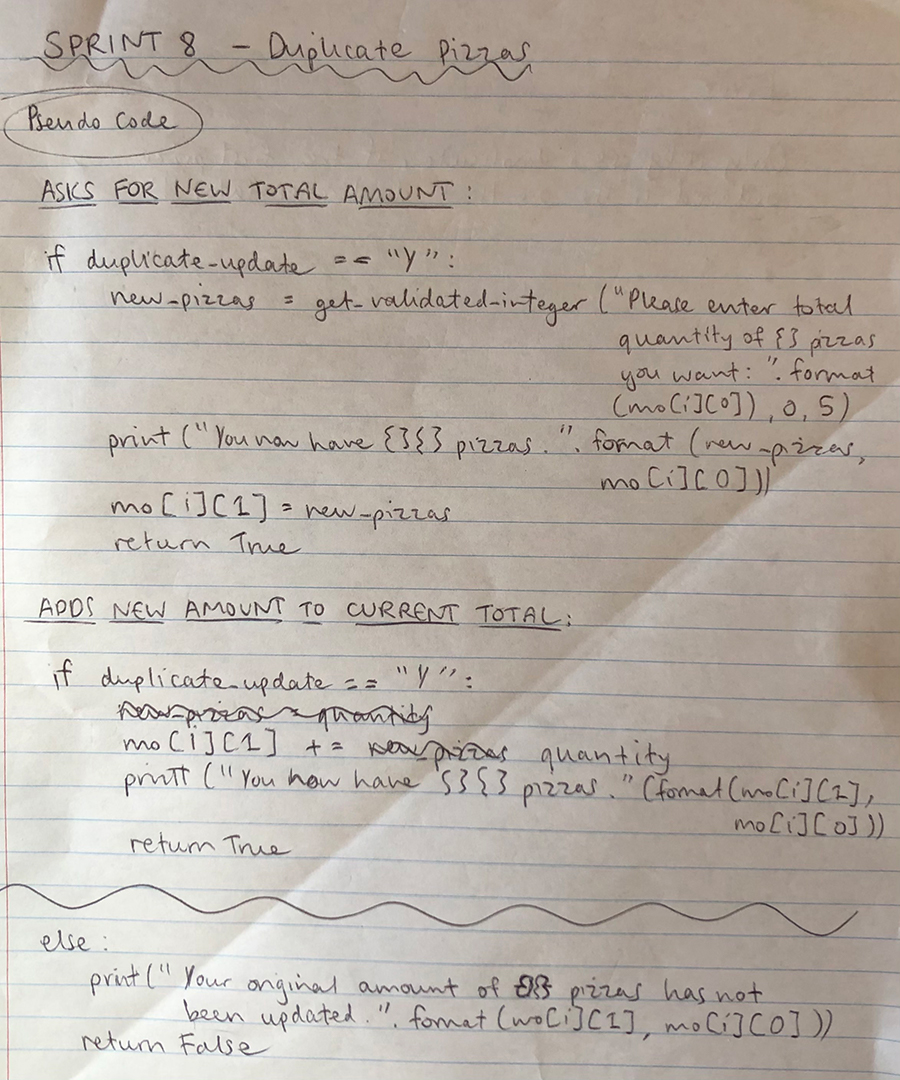 SPRINT 8 - Duplicate Pizzas
Pseudo Code
ASKS FOR NEW TOTAL AMOUNT:
if duplicate_update == "Y":
new_pizzas = get_validated_integer ("Please enter total
quantity of {} pizzas
you want: ".format
(mo[i][0]), 0, 5)
print ("You now have {}{} pizzas.".format (new_pizzas,
mo[i][0]))
mo[i][1] = new_pizzas
return True
ADDS NEW AMOUNT TO CURRENT TOTAL:
if duplicate_update == "Y":
new_pizzas = quantity
mo[i][1] += new_pizzas quantity
printt ("You now have {}{} pizzas." (format(mo[i][1],
mo[i][0]))
return True
else:
print(" Your original amount of {}{} pizzas has not
been updated.".format (mo[i][1], mo[i][0]))
return False